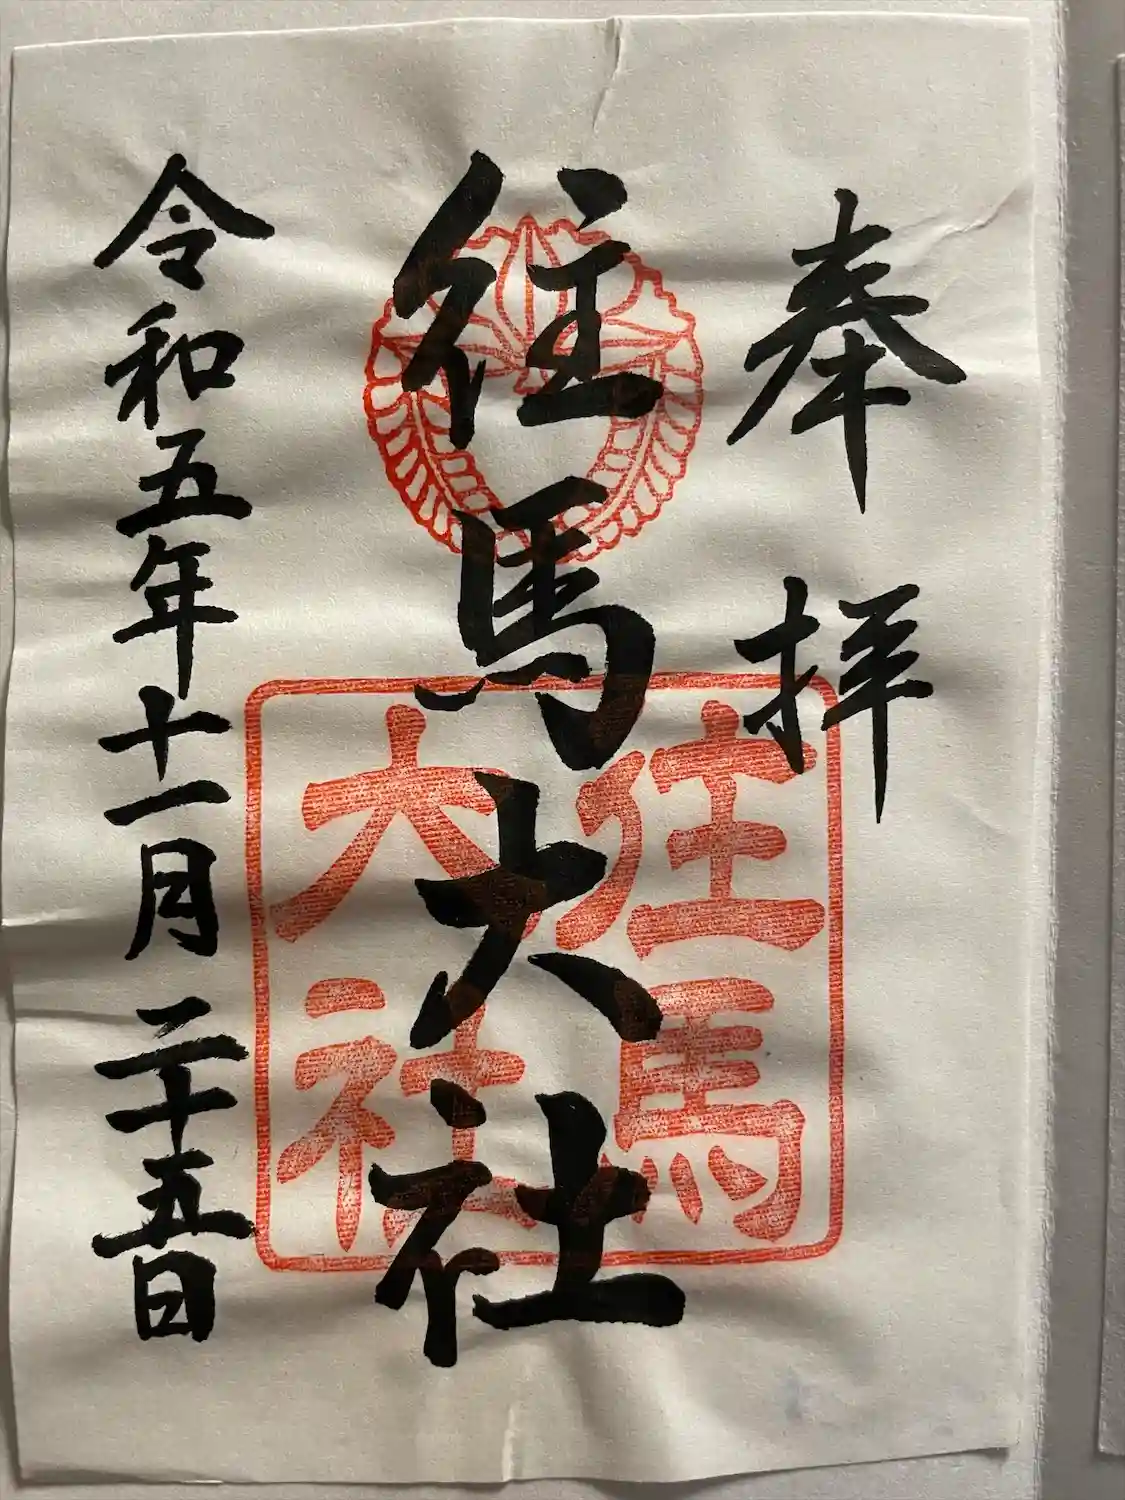 奉拝
往馬大社
往馬
大社
令和五年十一月二十五日